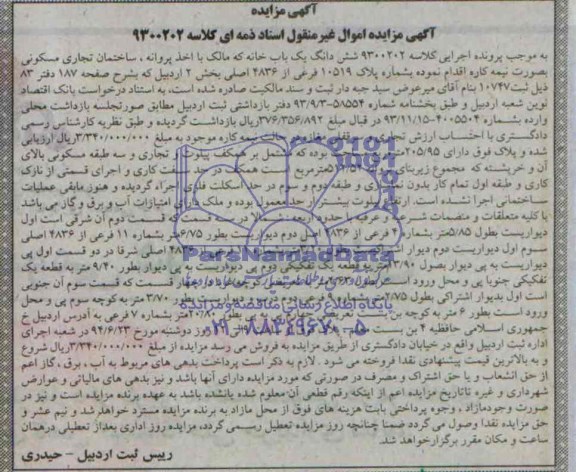 آگهی مزایده
آگهی مزایده اموال غیرمنقول اسناد ذمه ای کلاسه ۹۳۰۰۲۰۲
به موجب پرونده اجرایی کلاسه ۹۳۰۰۲۰۲ شش دانگ یک باب خانه که مالک با اخذ پروانه ، ساختمان تجاری مسکونی
بصورت نیمه کاره اقدام نموده بشماره پلاک ۱۰۵۱۹ فرعی از ۴۸۳۶ اصلی بخش ۲ اردبیل که بشرح صفحه ۱۸۷ دفتر ۸۳
ذیل ثبت ۱۰۷۴۷ بنام آقای میرعوض سید جبه دار ثبت و سند مالکیت صادره شده است، به استناد درخواست بانک اقتصاد
نوین شعبه اردبیل و طبق بخشنامه شماره ۵۱۵۵۴-۹۳/۹/۳ دفتر بازداشتی ثبت اردبیل مطابق صورتجلسه بازداشت محلی
وارده بشماره ۴۰۰۵۵۰۴-۹۳/۱۱/۱۵ در قبال مبلغ ۳۷۶/۳۵۶/۸۹۲ریال بازداشت گردیده و طبق نظریه کارشناس رسمی
دادگستری با احتساب ارزش تجاری و سرقفلی مغازه در حالت نیمه کاره موجود به مبلغ ۳/۳۴۰/۰۰۰/۰۰۰ریال ارزیابی
شده و پلاک فوق دارای ۲۰۵/۹۵ بوده که مشتمل بر همکف پیلوت و تجاری و سه طبقه مسکونی بالای
آن و خرپشته که مجموع زیربنای مترمربع است همکف در حد سفت کاری و اجرای قسمتی از نازک
کاری و طبقه اول تمام کار بدون نماسازی و طبقه دوم و سوم در حد اسکلت فلزی اجراء گردیده و هنوز مابقی عملیات
ساختمانی اجرا نشده است. ارتفاع پیلوت بیشتر از حد معمول بوده و ملک دارای امتیازات آب و برق و گاز می باشد
با کلیه متعلقات و منضمات شرعیه و عرفیه و حدود اربعه در قسمت دوم آن شرقی است اول
دیواریست بطول ۵/۸۵متر بشماره فرعی از ۴۸۳۶ اصلی دوم دیواریست بطور ۶/۷۵متر بشماره ۱۱ فرعی از ۴۸۳۶ اصلی
سوم اول دیواریست دوم دیوار اصلی شرقا در دو قسمت اول پی
دیواریست به پی دیوار بصول ۳/۹۰متر به قطعه یک تفکیکی دوم پی دیواریست به پی دیوار بطور ۹/۴۰ متر به قطعه یک
تفکیکی جنوبا پی و محل ورود است قسمت که قسمت سوم آن جنوبی
است اول بدیوار اشتراکی بطول ۲/۷۵ بطور ۳/۷۰متر به کوچه سوم پی و محل
ورود است بطور ۶ متر به کوچه بطور ۲۰/۸۰متر بشماره ۷ فرعی به آدرس اردبیل خ
جمهوری اسلامی حافظیه ۴ بن روز دوشنبه مورخ ۹۴/۶/۲۳ در شعبه اجرای
اداره ثبت اردبیل واقع در خیابان دادگستری از طریق مزایده به فروش می رسد مزایده از مبلغ ۳/۳۴۰/۰۰۰/۰۰۰ریال شروع
و به بالاترین قیمت پیشنهادی نقدا فروخته می شود . لازم به ذکر است پرداخت بدهی های مربوط به آب ، برق ، گاز اعم
از حق انشعاب و یا حق اشتراک و مصرف در صورتی که مورد مزایده دارای آنها باشد و نیز بدهی های مالیاتی و عوارض
شهرداری و غیره تاتاریخ مزایده اعم از اینکه رقم قطعی آن معلوم شده یانشده باشد به عهده برنده مزایده است و نیز در
صورت وجودمازاد ، وجوه پرداختی بابت هزینه های فوق از محل مازاد به برنده مزایده مسترد خواهد شد و نیم عشر و
حق مزایده نقدا وصول می گردد ضمنا چنانچه روز مزایده تعطیل رسمی گردد، مزایده روز اداری بعداز تعطیلی درهمان
ساعت و مکان مقرر برگزارخواهد شد.
رییس ثبت اردبیل – حیدری
ParsNamadData
پایگاه اطلاع رسانی مناقصه و مزایده
۰۲۱-۸۸۳۴۹۶۷۰-۵